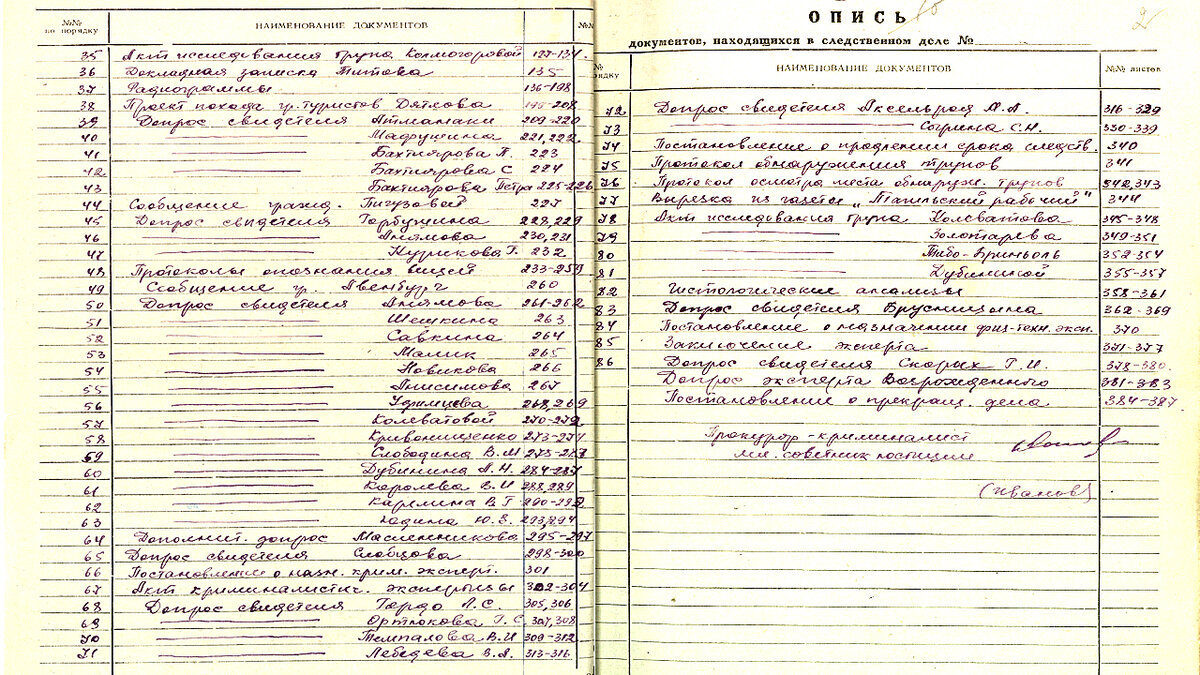 №№ по порядку НАИМЕНОВАНИЕ ДОКУМЕНТОВ №№
35 Акт исследования трупа Колмогоровой 127-134.
36 Докладная записка Титова 135
37 Радиограммы 136-198
38 Проект похода гр. туристов Дятлова 195-208
39 Допрос свидетеля Атманаки 209-220
40 Мадрушкина 221, 222
41 Бахтиярова П. 223
42 Бахтиярова С 224
43 Бахтиярова Петра 225-226
44 Сообщение гражд. Пигузовой 227
45 Допрос свидетеля Горбушина 228, 229
46 Анямова 230, 231
47 Курикова Г. 232
48 Протоколы опознания вещей 233-259
49 Сообщение гр. Авенбург 260
50 Допрос свидетеля Анямова 261-262
51 Шешкина 263
52 Савкина 264
53 Малик 265
54 Новикова 266
55 Анисимова 267
56 Уфимцева 268, 269
57 Колеватовой 270-272
58 Кривонищенко 273-274
59 Слободина В.М 275-287
60 Дубинина А.Н. 284-287
61 Королева В.И 288, 289
62 Карелина В.Г 290-292
63 Юдина Ю.Е. 293, 294
64 Дополнит. допрос Масленникова 295-297
65 Допрос свидетеля Слобцова 298-300
66 Постановление о назн. крим. эксперт. 301
67 Акт криминалистич. экспертизы 302-304
68 Допрос свидетеля Гордо Л.С. 305, 306
69 Ортюкова Г.С. 307, 308
70 Темпалова В.И 309-312
71 Лебедева В.Л. 313-316
ОПИСЬ
2
документов, находящихся в следственном деле №
№ рядку НАИМЕНОВАНИЕ ДОКУМЕНТОВ №№ листов
72 Допрос свидетеля Аксельрод М.А. 316-329
73 Согрина С.Н. 330-339
74 Постановление о продлении срока следств. 340
75 Протокол обнаружения трупов 341
76 Протокол осмотра места обнаруж. трупов 342, 343
77 Вырезка из газеты „Тагильский рабочий" 344
78 Акт исследования трупа Колеватова 345-348
79 Золотарева 349-351
80 Тибо-Бриньоль 352-354
81 Дубининой 355-357
82 Гистологические анализы 358-361
83 Допрос свидетеля Брусницына 362-369
84 Постановление о назначении физ-техн. эксп. 370
85 Заключение эксперта 371-377
86 Допрос свидетеля Скорых Г.И. 378-380
Допрос эксперта Возрожденного 381-383
Постановление о прекращ. дела 384-387
Прокурор-криминалист
мл. советник юстиции
(Иванов)